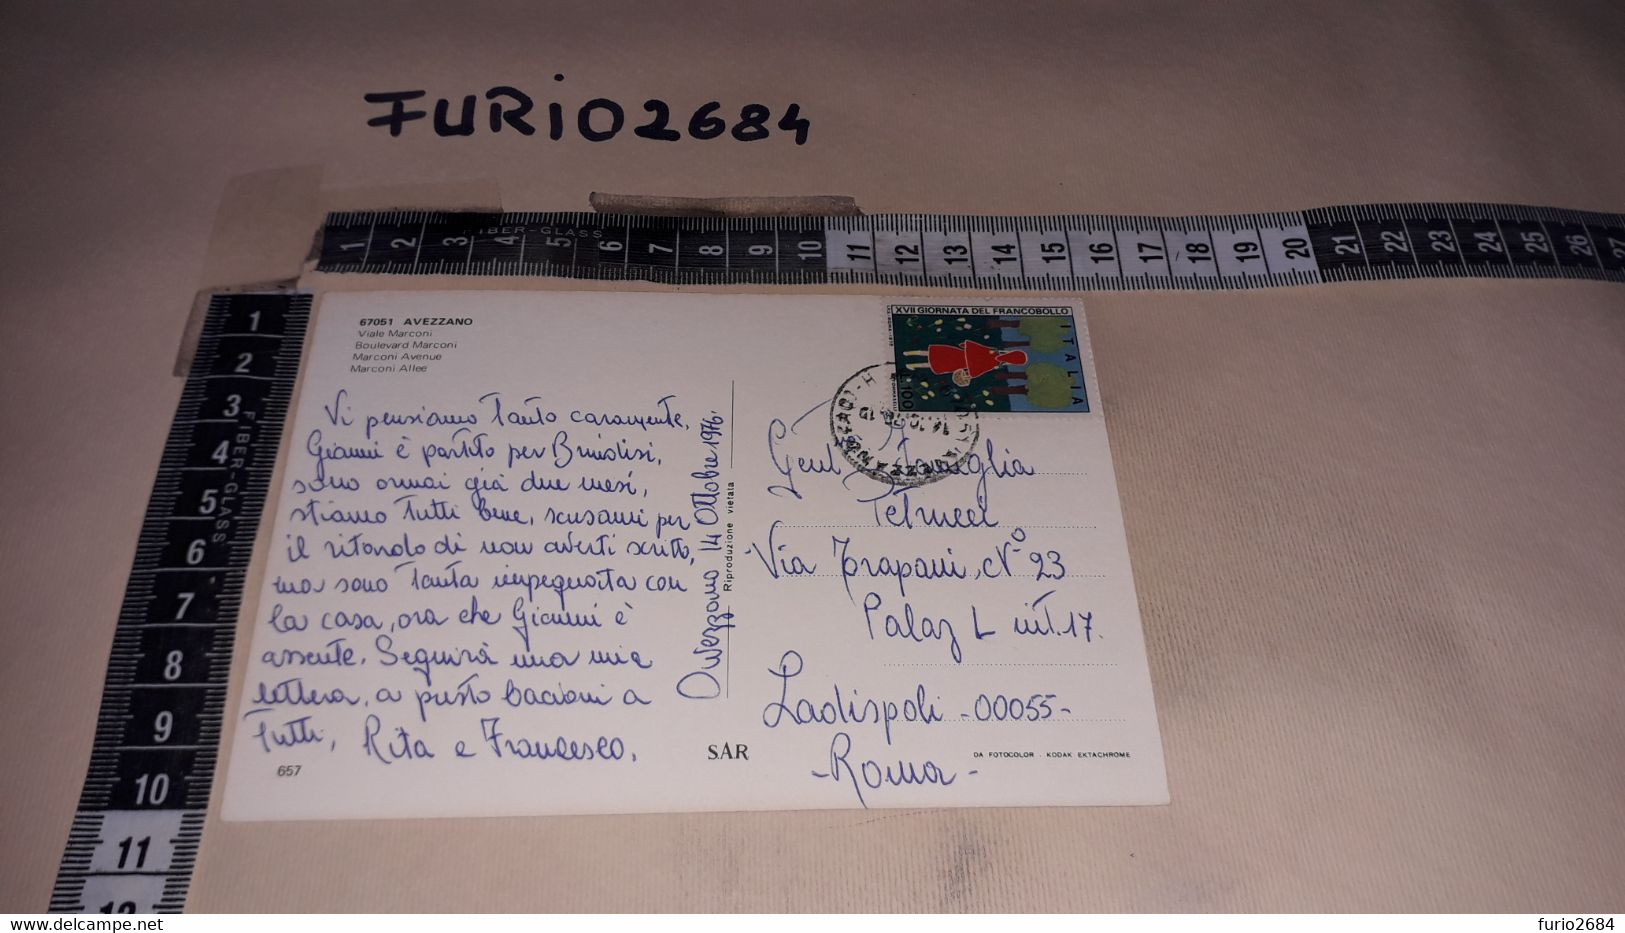 FURIO2684
FIBER-GLASS
1 2 3 4 5 6 7 8 9 10 11 12 13 14 15 16 17 18 19 20 21 22 23 24 25 26 27
1
2
3
4
5
6
7
8
9
10
11
12
FIBER-GLASS
67051 AVEZZANO
Viale Marconi
Boulevard Marconi
Marconi Avenue
Marconi Allee
Vi pensiamo tanto caramente,
Gianni è partito per Brindisi,
sono ormai già due mesi,
stiamo tutti bene, scusami per
il ritardo di non averti scritto,
ma sono tanta impegnata con
la casa, ora che Gianni è
assente. Seguirà una mia
lettera, a presto bacioni a
tutti, Rita e Francesco.
657
Avezzano 14 Ottobre 1976.
Riproduzione vietata
SAR
XVII GIORNATA DEL FRANCOBOLLO
ITALIA
L.100
Gent Famiglia
Petrucci
Via Trapani, N° 23
Palaz L int. 17.
Ladispoli -00055-
-Roma-
DA FOTOCOLOR . KODAK EKTACHROME
www.delcampe.net
furio2684